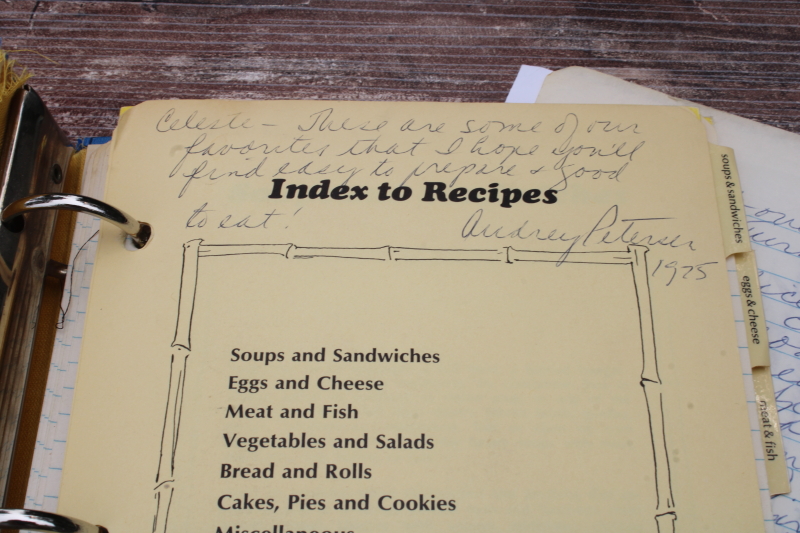 Celeste - These are some of our
favorites that I hope you'll
find easy to prepare & good
Index to Recipes
to eat!
Audrey Petersen
1975
Soups and Sandwiches
Eggs and Cheese
Meat and Fish
Vegetables and Salads
Bread and Rolls
Cakes, Pies and Cookies
Miscellaneous
soups & sandwiches
eggs & cheese
meat & fish